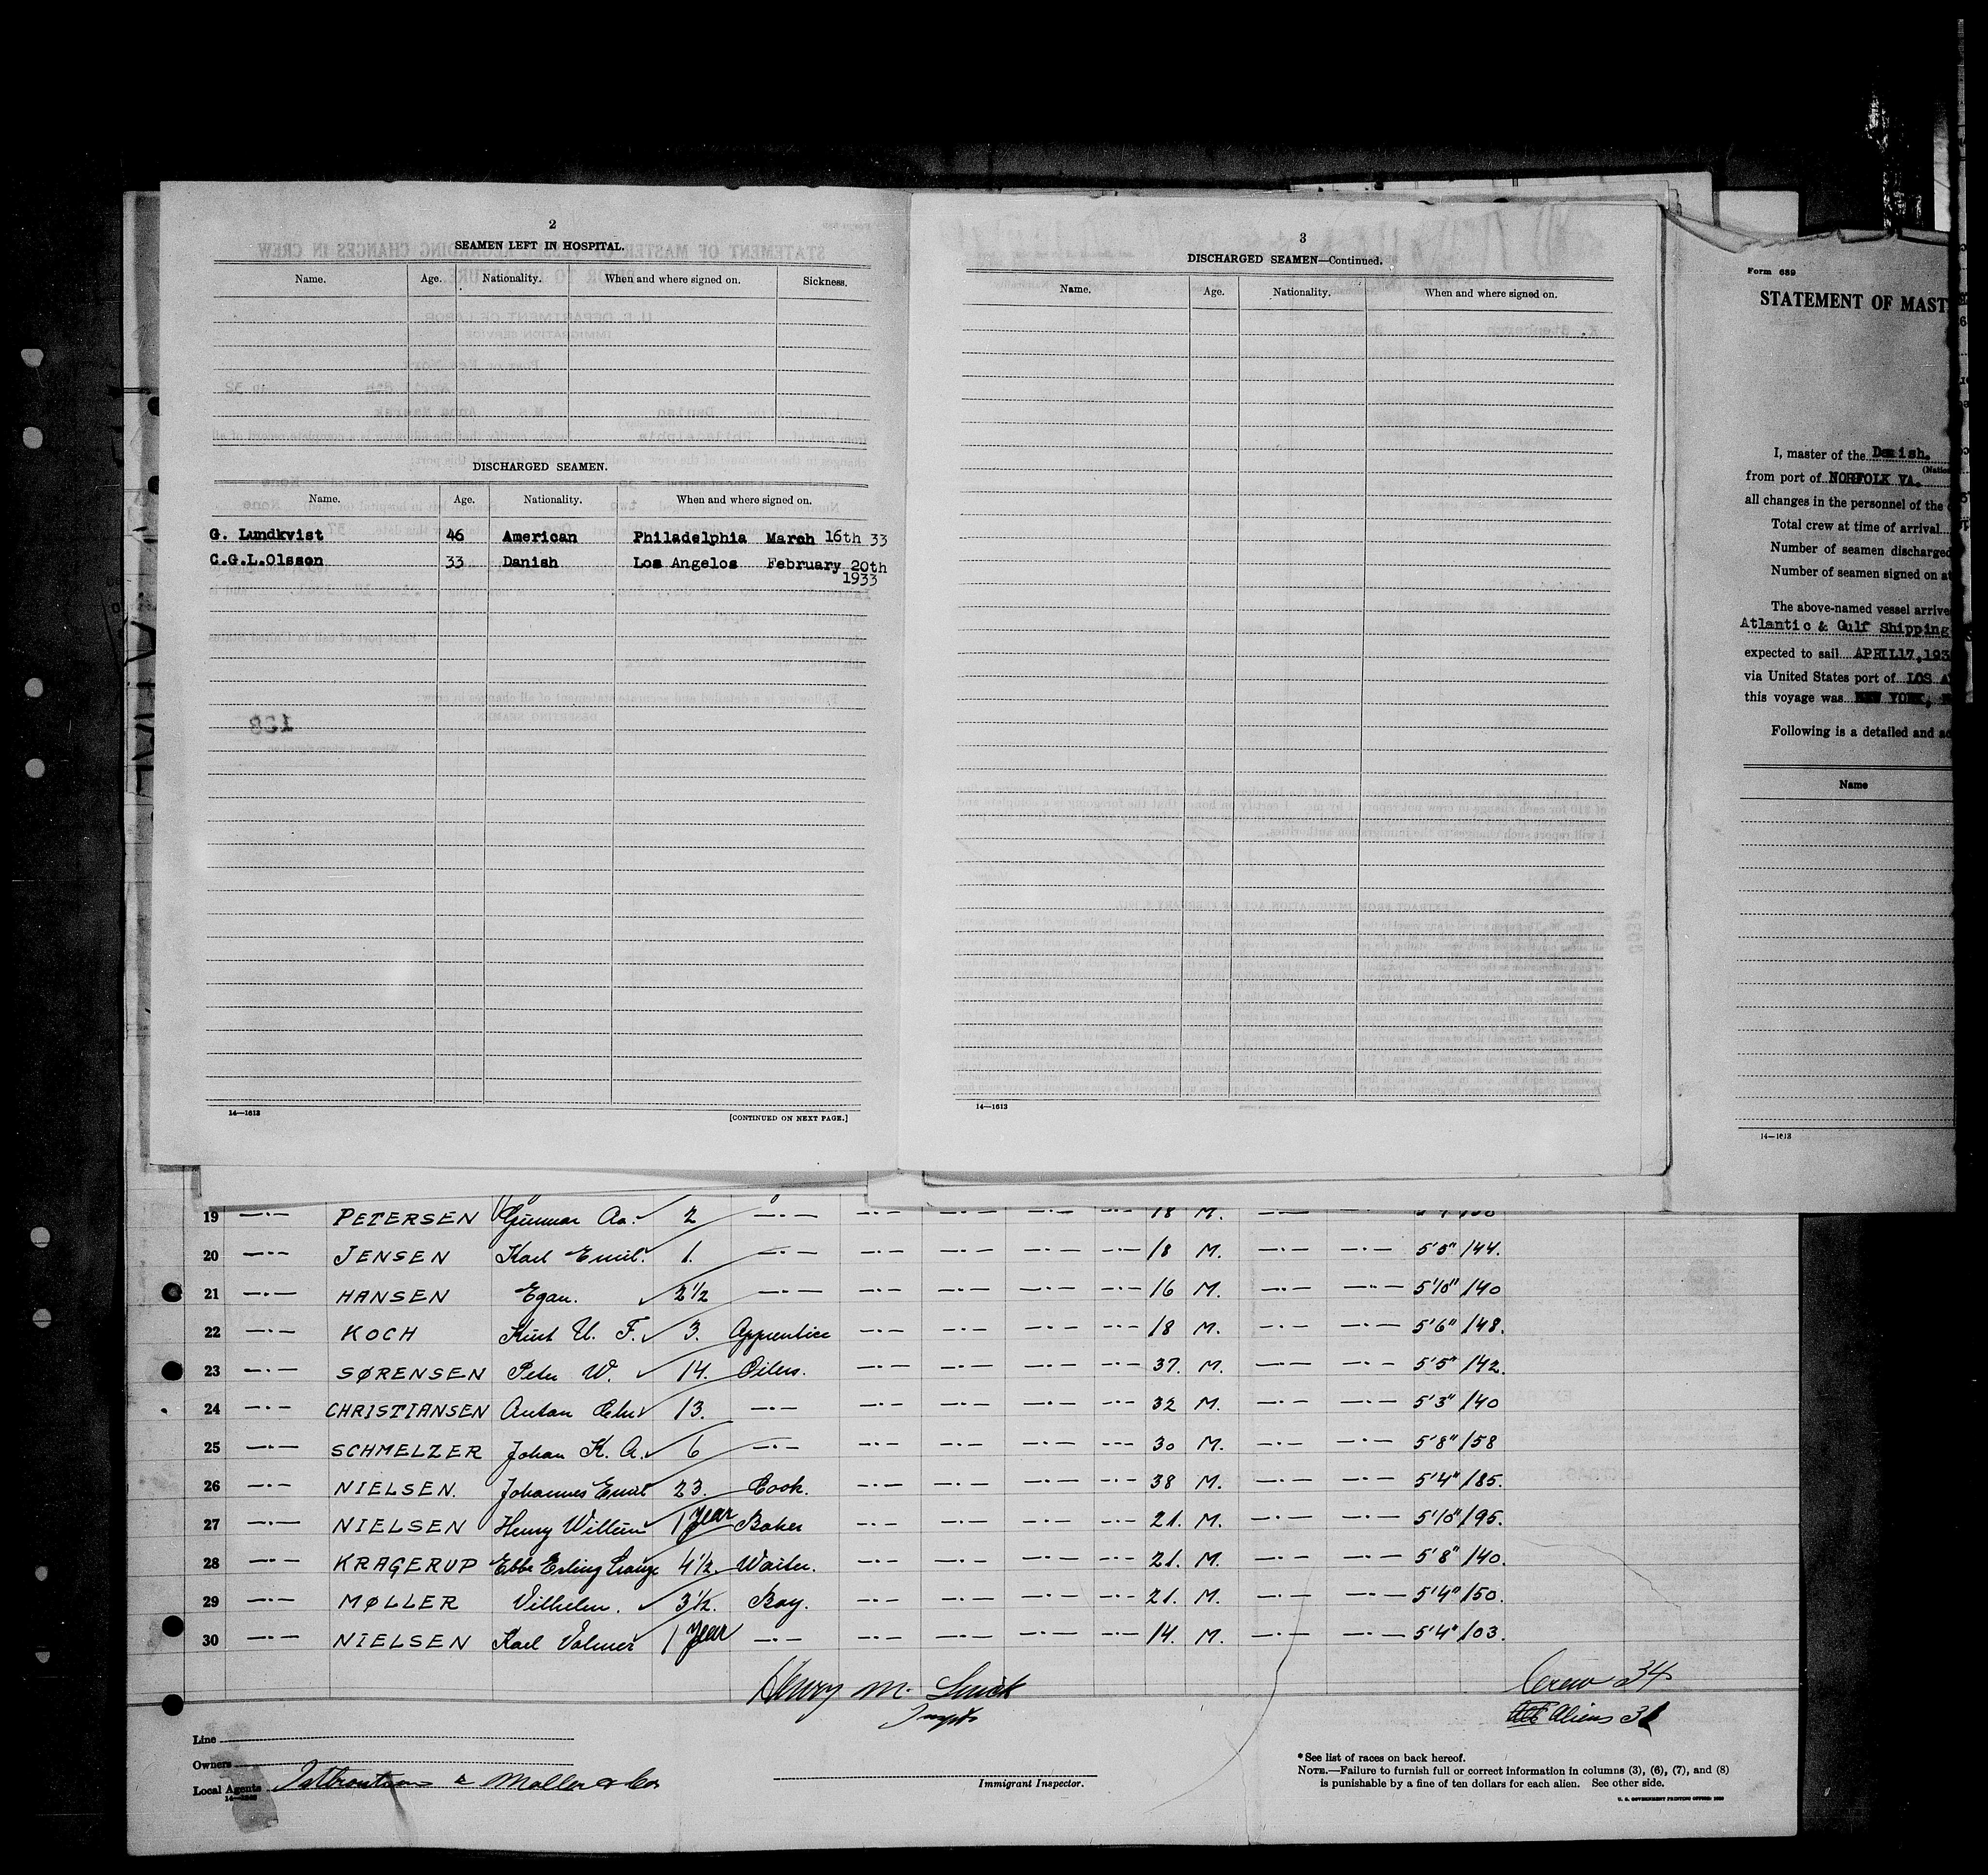 2
SEAMEN LEFT IN HOSPITAL.
Name. Age. Nationality. When and where signed on. Sickness.
DISCHARGED SEAMEN.
Name. Age. Nationality. When and where signed on.
G. Lundkvist 46 American Philadelphia March 16th 33
C.G.L.Olsson 33 Danish Los Angelos February 20th
1933
14—1613 [CONTINUED ON NEXT PAGE.]
3
DISCHARGED SEAMEN—Continued.
Name. Age. Nationality. When and where signed on.
14—1613
Form 689
STATEMENT OF MAST
I, master of the Danish.
from port of NORFOLK VA.
all changes in the personnel of the
Total crew at time of arrival
Number of seamen discharged
Number of seamen signed on at
The above-named vessel arrive
Atlantic & Gulf Shipping
expected to sail APRIL17,193
via United States port of LOS A
this voyage was NEW YORK,
Following is a detailed and ac
Name
14—1613
19 —·— PETERSEN Gunnar Aa. 2 —·— —·— —·— —·— —·— 18 M. —·— —·—
20 —·— JENSEN Karl Emil. 1. —·— —·— —·— —·— —·— 18 M. —·— —·— 5'5" 144.
21 —·— HANSEN Egan. 2½ —·— —·— —·— —·— —·— 16 M. —·— —·— 5'10" 140
22 —·— KOCH Kurt U. F. 3. Apprentice —·— —·— —·— —·— 18 M. —·— —·— 5'6" 148.
23 —·— SØRENSEN Peter W. 14. Oilers. —·— —·— —·— —·— 37. M. —·— —·— 5'5" 142.
24 —·— CHRISTIANSEN Anton Chr 13. —·— —·— —·— —·— —·— 32 M. —·— —·— 5'3" 140
25 —·— SCHMELZER Johan K. A. 6 —·— —·— —·— —·— —·— 30 M. —·— —·— 5'8" 158
26 —·— NIELSEN. Johannes Emil 23. Cook. —·— —·— —·— —·— 38 M. —·— —·— 5'4" 185.
27 —·— NIELSEN Henry Willem 1 year Baker —·— —·— —·— —·— 21. M. —·— —·— 5'10" 195.
28 —·— KRAGERUP Ebbe Erling 4½. Waiter. —·— —·— —·— —·— 21. M. —·— —·— 5'8" 140.
29 —·— MØLLER Vilhelm. 3½. Boy. —·— —·— —·— —·— 21. M. —·— —·— 5'4" 150.
30 —·— NIELSEN Karl Volmer 1 year —·— —·— —·— —·— —·— 14. M. —·— —·— 5'4" 103.
Henry M.
Crew 34
Aliens 31
Line
Owners
Local Agents & Moller & Co
Immigrant Inspector.
*See list of races on back hereof.
NOTE.—Failure to furnish full or correct information in columns (3), (6), (7), and (8)
is punishable by a fine of ten dollars for each alien. See other side.
U. S. GOVERNMENT PRINTING OFFICE: